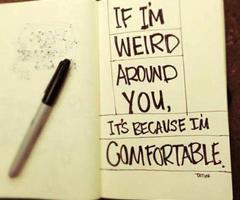 IF I'M
WEIRD
AROUND
YOU,
IT'S BECAUSE I'M
COMFORTABLE.